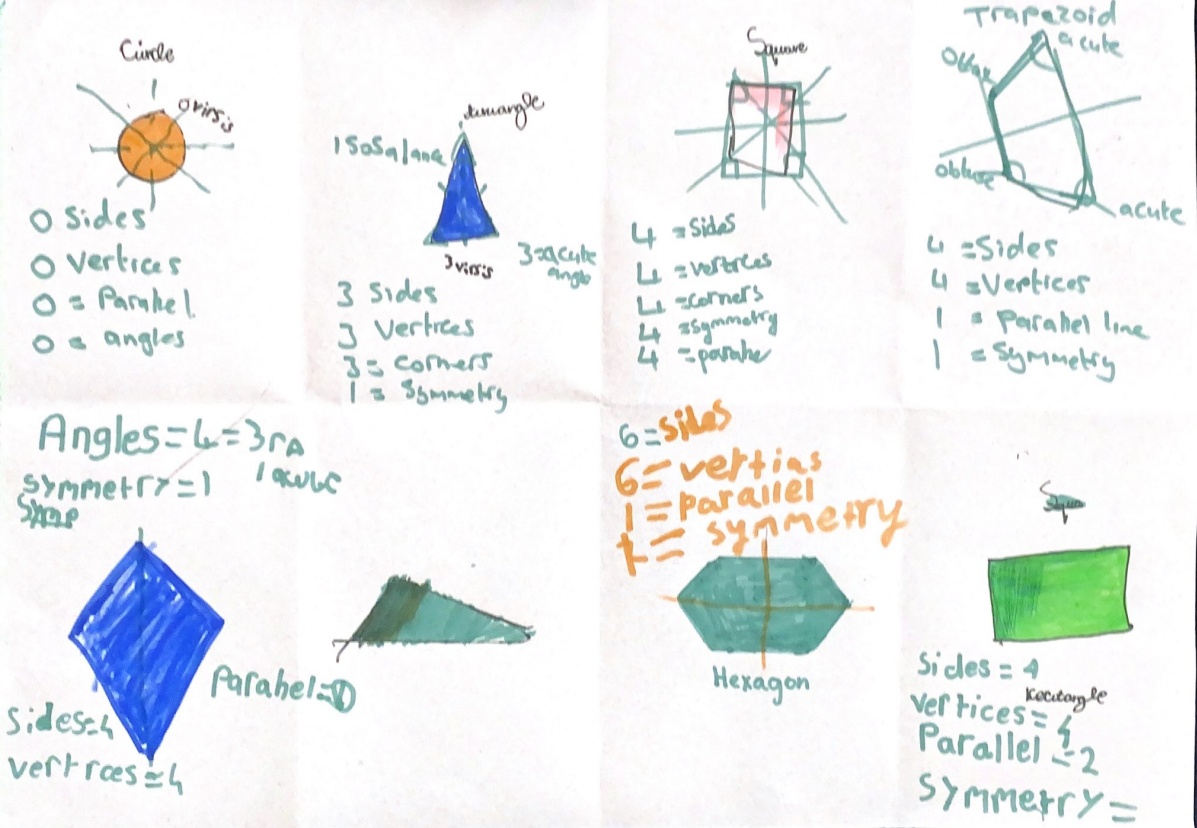 Circle
0 virsis
0 sides
0 vertices
0 = Parahel
0 = angles
ISoSalana
3 = acute
angle
3 virsis
3 Sides
3 Vertices
3 = corners
1 = Symmetry
Square
4 = Sides
4 = vertices
4 = corners
4 = Symmetry
4 = parahe
Trapezoid
acute
obtuse
acute
4 = Sides
4 = Vertices
1 = Parahel line
1 = Symmetry
Angles = 4 = 3 rA
symmetry = 1
Parahel =
Sides = 4
vertices = 4
6 = sides
6 = vertias
1 = parallel
= symmetry
Hexagon
Squ
Sides = 4
Recutangle
vertices = 4
Parallel = 2
Symmetry =